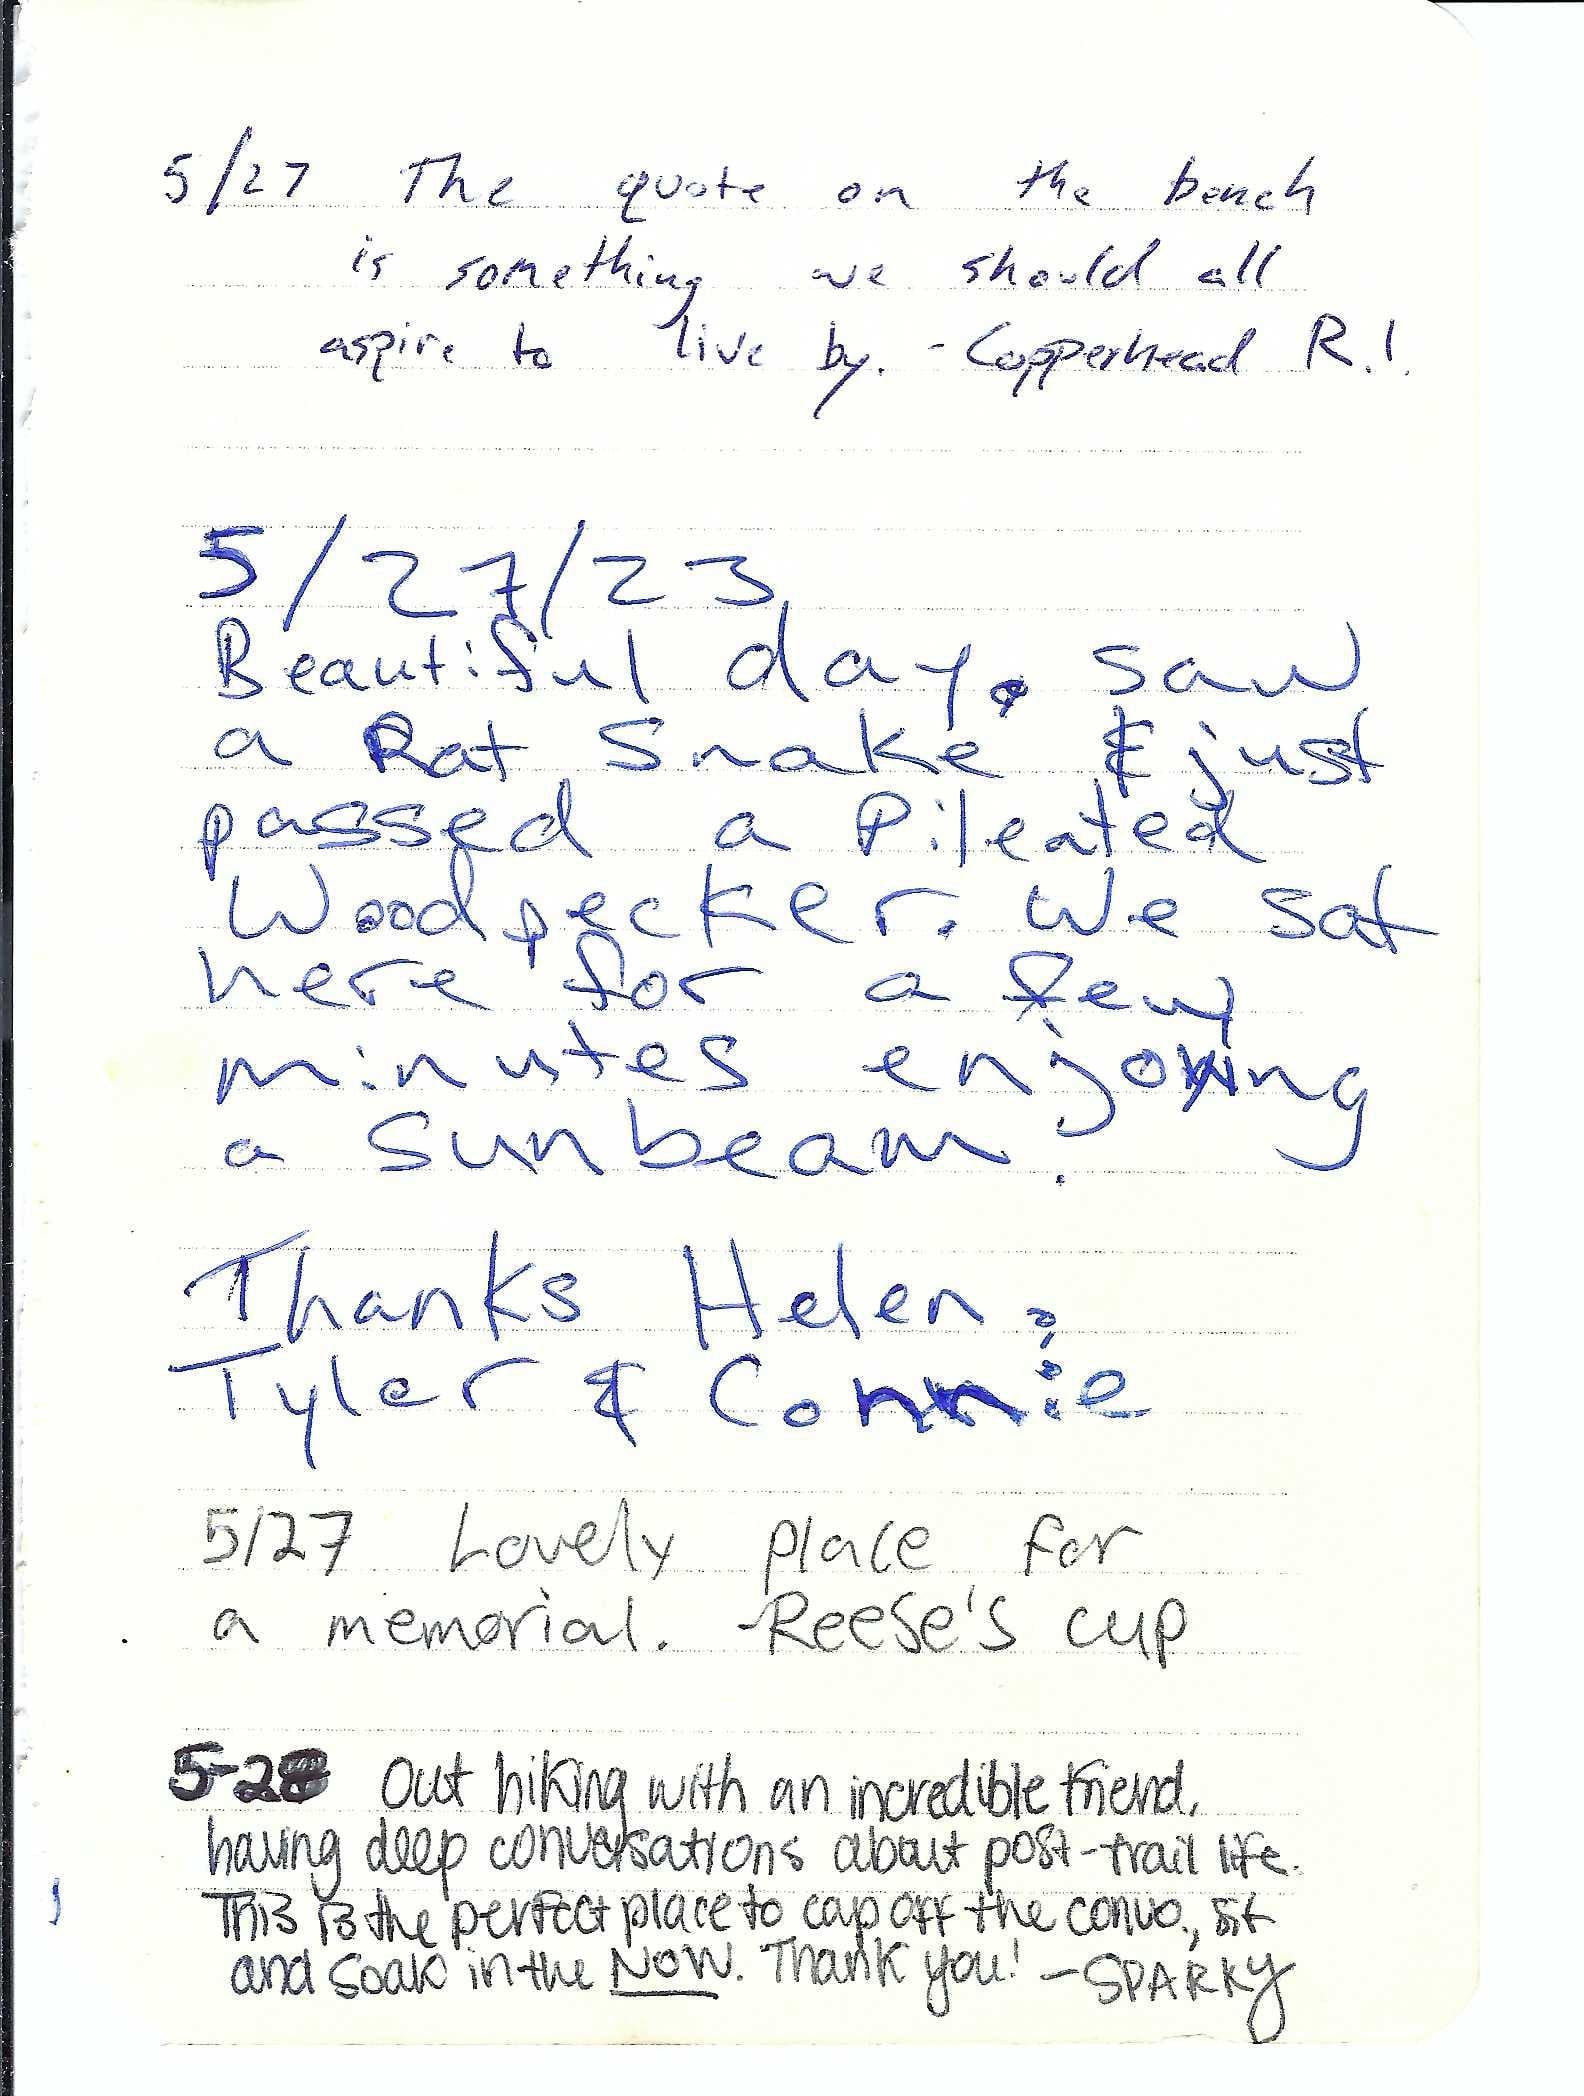 5/27 The quote on the bench
is something we should all
aspire to live by. - Copperhead R.I.
5/27/23
Beautiful day, saw
a Rat Snake & just
passed a Pileated
Woodpecker. We sat
here for a few
minutes enjoying
a sunbeam.
Thanks Helen,
Tyler & Connie
5/27 Lovely place for
a memorial. -Reese's cup
5-28 Out hiking with an incredible friend,
having deep conversations about post-trail life.
This is the perfect place to cap off the convo, sit
and soak in the NOW. Thank you! -SPARKY